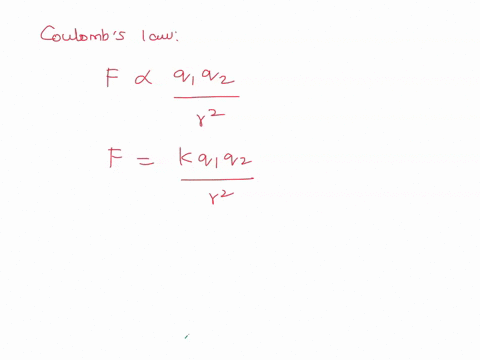 Coulomb's law:
F ∝ q₁q₂ / r²
F = kq₁q₂ / r²